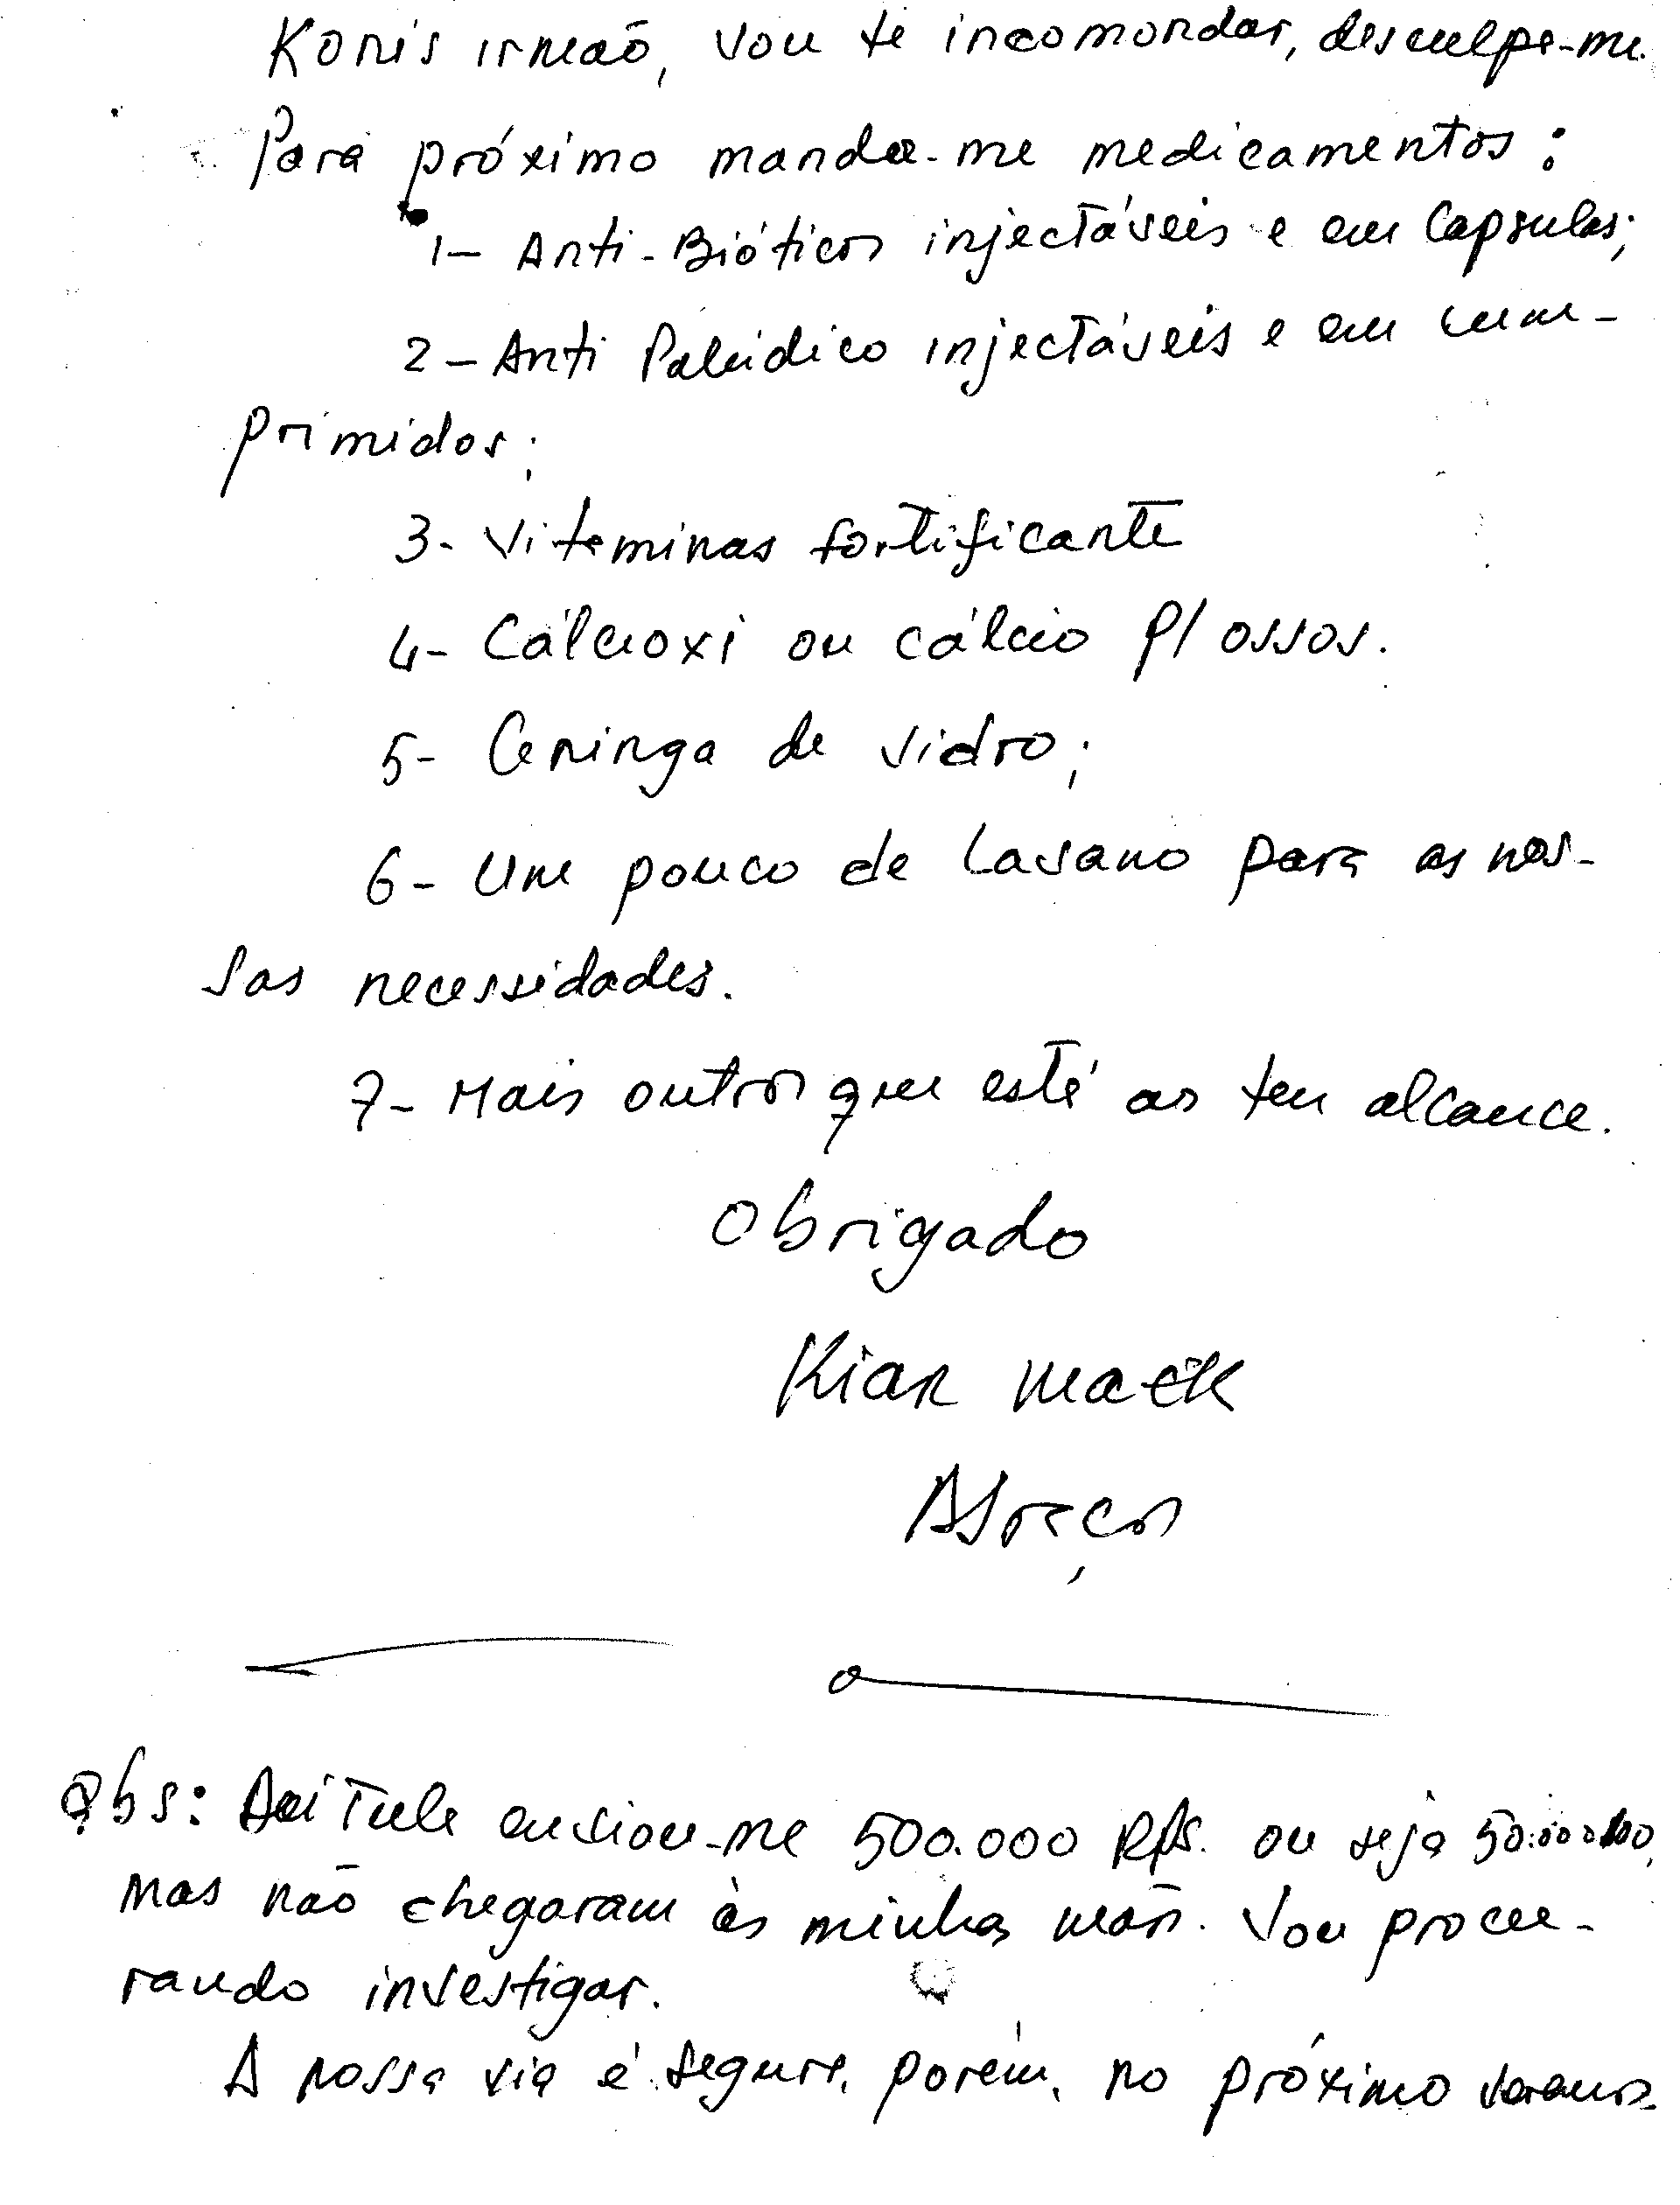 Konis irmaõ, vou te incomondar, desculpe-me.
Para próximo manda-me medicamentos:
1- Anti-Bióticos injectáveis e em Capsulas;
2- Anti Paludico injectáveis e em cum-
primidos;
3- Vitaminas fortificante
4- Cálcioxi ou cálcio p/ ossos.
5- Ceringa de vidro;
6- Um pouco de Lavano para as nos-
sas necessidades.
7- Mais outros que esté ao teu alcance.
Obrigado
Kiar Maek
Abraços
Obs: enviou-me 500.000 Rps. ou seja
mas naõ chegaram às minhas maõs. Vou procu-
rando investigar.
A nossa via é segura, porém, no próximo